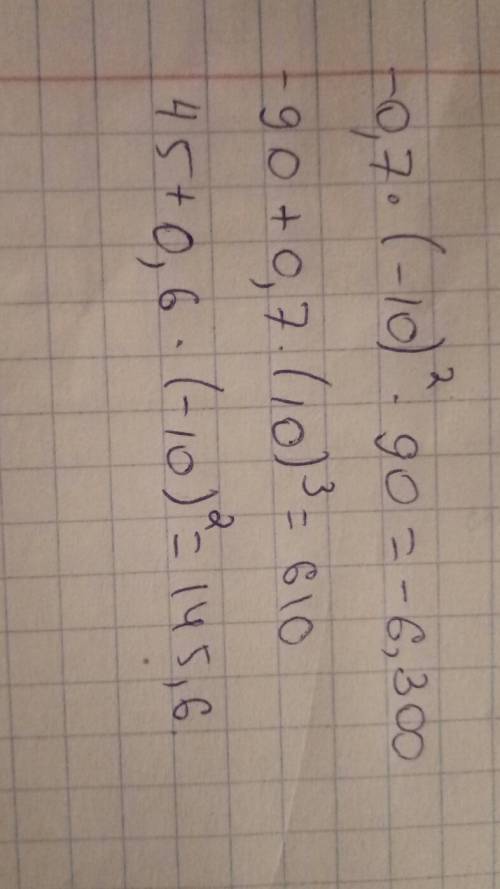 -0,7 · (-10)² · 90 = -6,300
-90 + 0,7 · (10)³ = 610
45 + 0,6 · (-10)² = 145,6